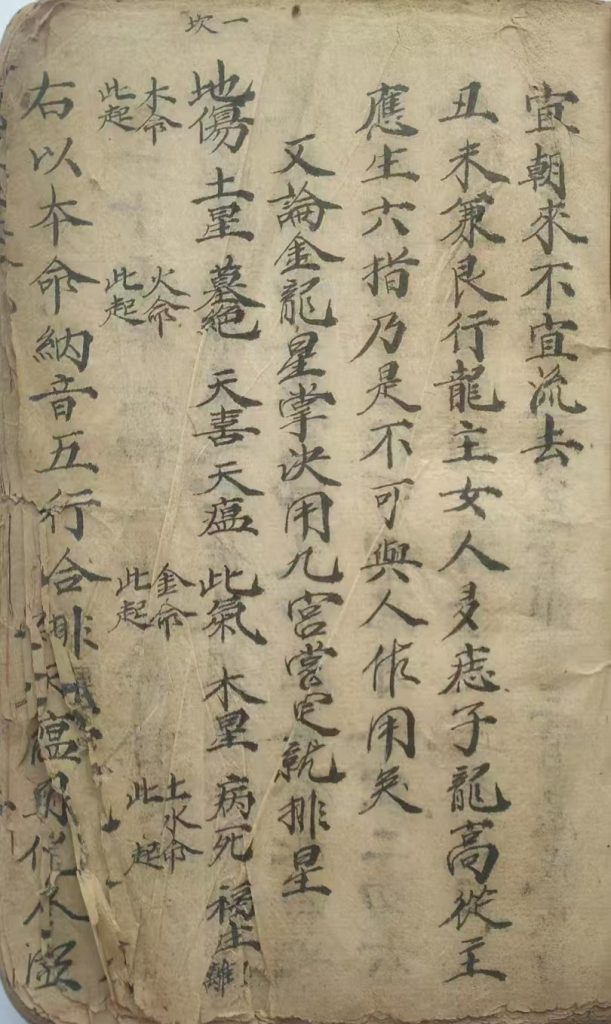 宜朝來不宜流去
丑未兼艮行龍主女人多痣子龍高從主
應生六指乃是不可與人作用矣
又論金龍星掌決用九宮嘗定就排星
一坎
地傷 土星 墓絕 天喜 天瘟 此氣 木星 病死 福生 離
木命此起
火命此起
金命此起
土水命此起
右以本命納音五行合排天瘟